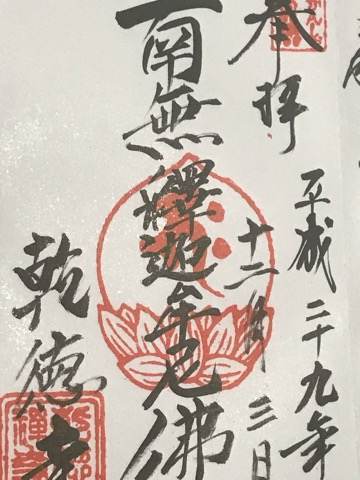 奉拝
平成二十九年
十二月三日
南無釋迦牟尼佛
乾徳寺